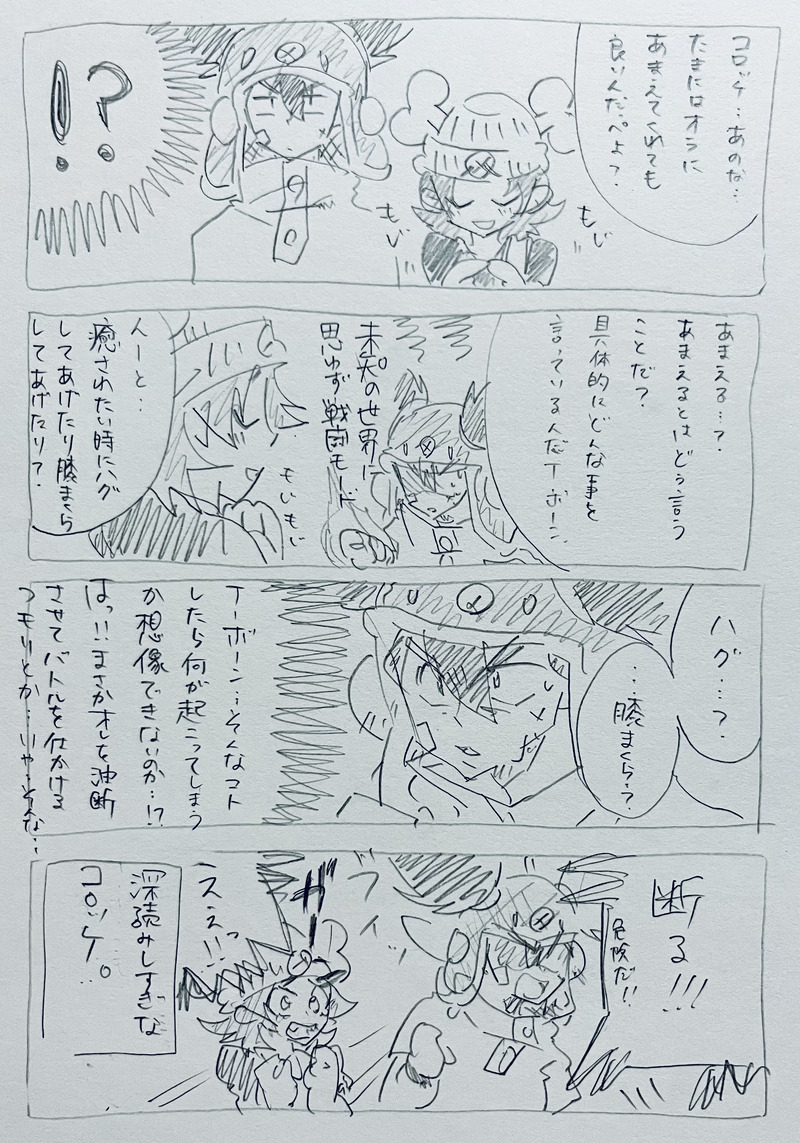 コロッケ…あのな…
たまにはオラに
あまえてくれても
良いんだっぺよ？
もじ
もじ
!?
あまえる…？
あまえるとはどう言う
ことだ？
具体的にどんな事を
言っているんだTーボーン
未知の世界に
思わず戦闘モード
もじもじ
んーと…
癒されたい時にハグ
してあげたり膝まくら
してあげたり？
ハグ…？
…膝まくら…？
Tーボーン…そんなコト
したら何が起こってしまう
か想像できないのか…!?
はっ!!まさかオレを油断
させてバトルを仕かける
つもりとか…いや…そんな…
断る!!!
危険だ!!
プイッ
ガーン
ええっ!!
深読みしすぎな
コロッケ。